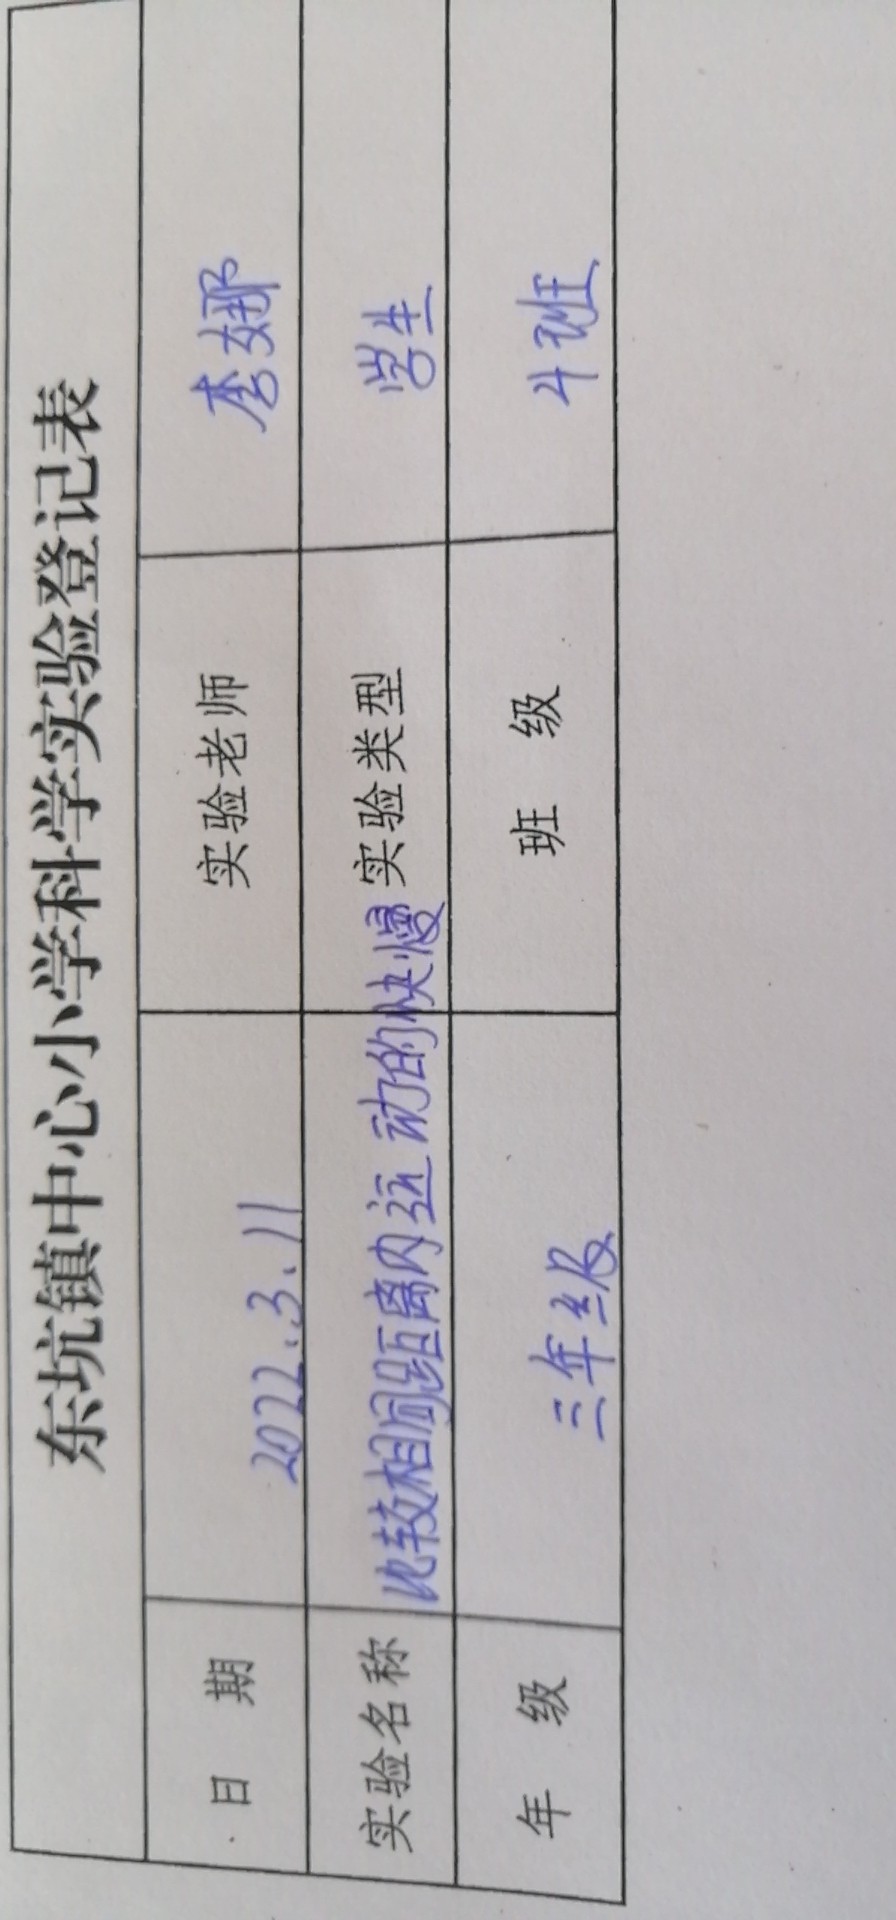 东坑镇中心小学科学实验登记表
日 期 2022.3.11 实验老师 李娜
实验名称 比较相同距离内运动的快慢 实验类型 学生
年 级 三年级 班 级 4班